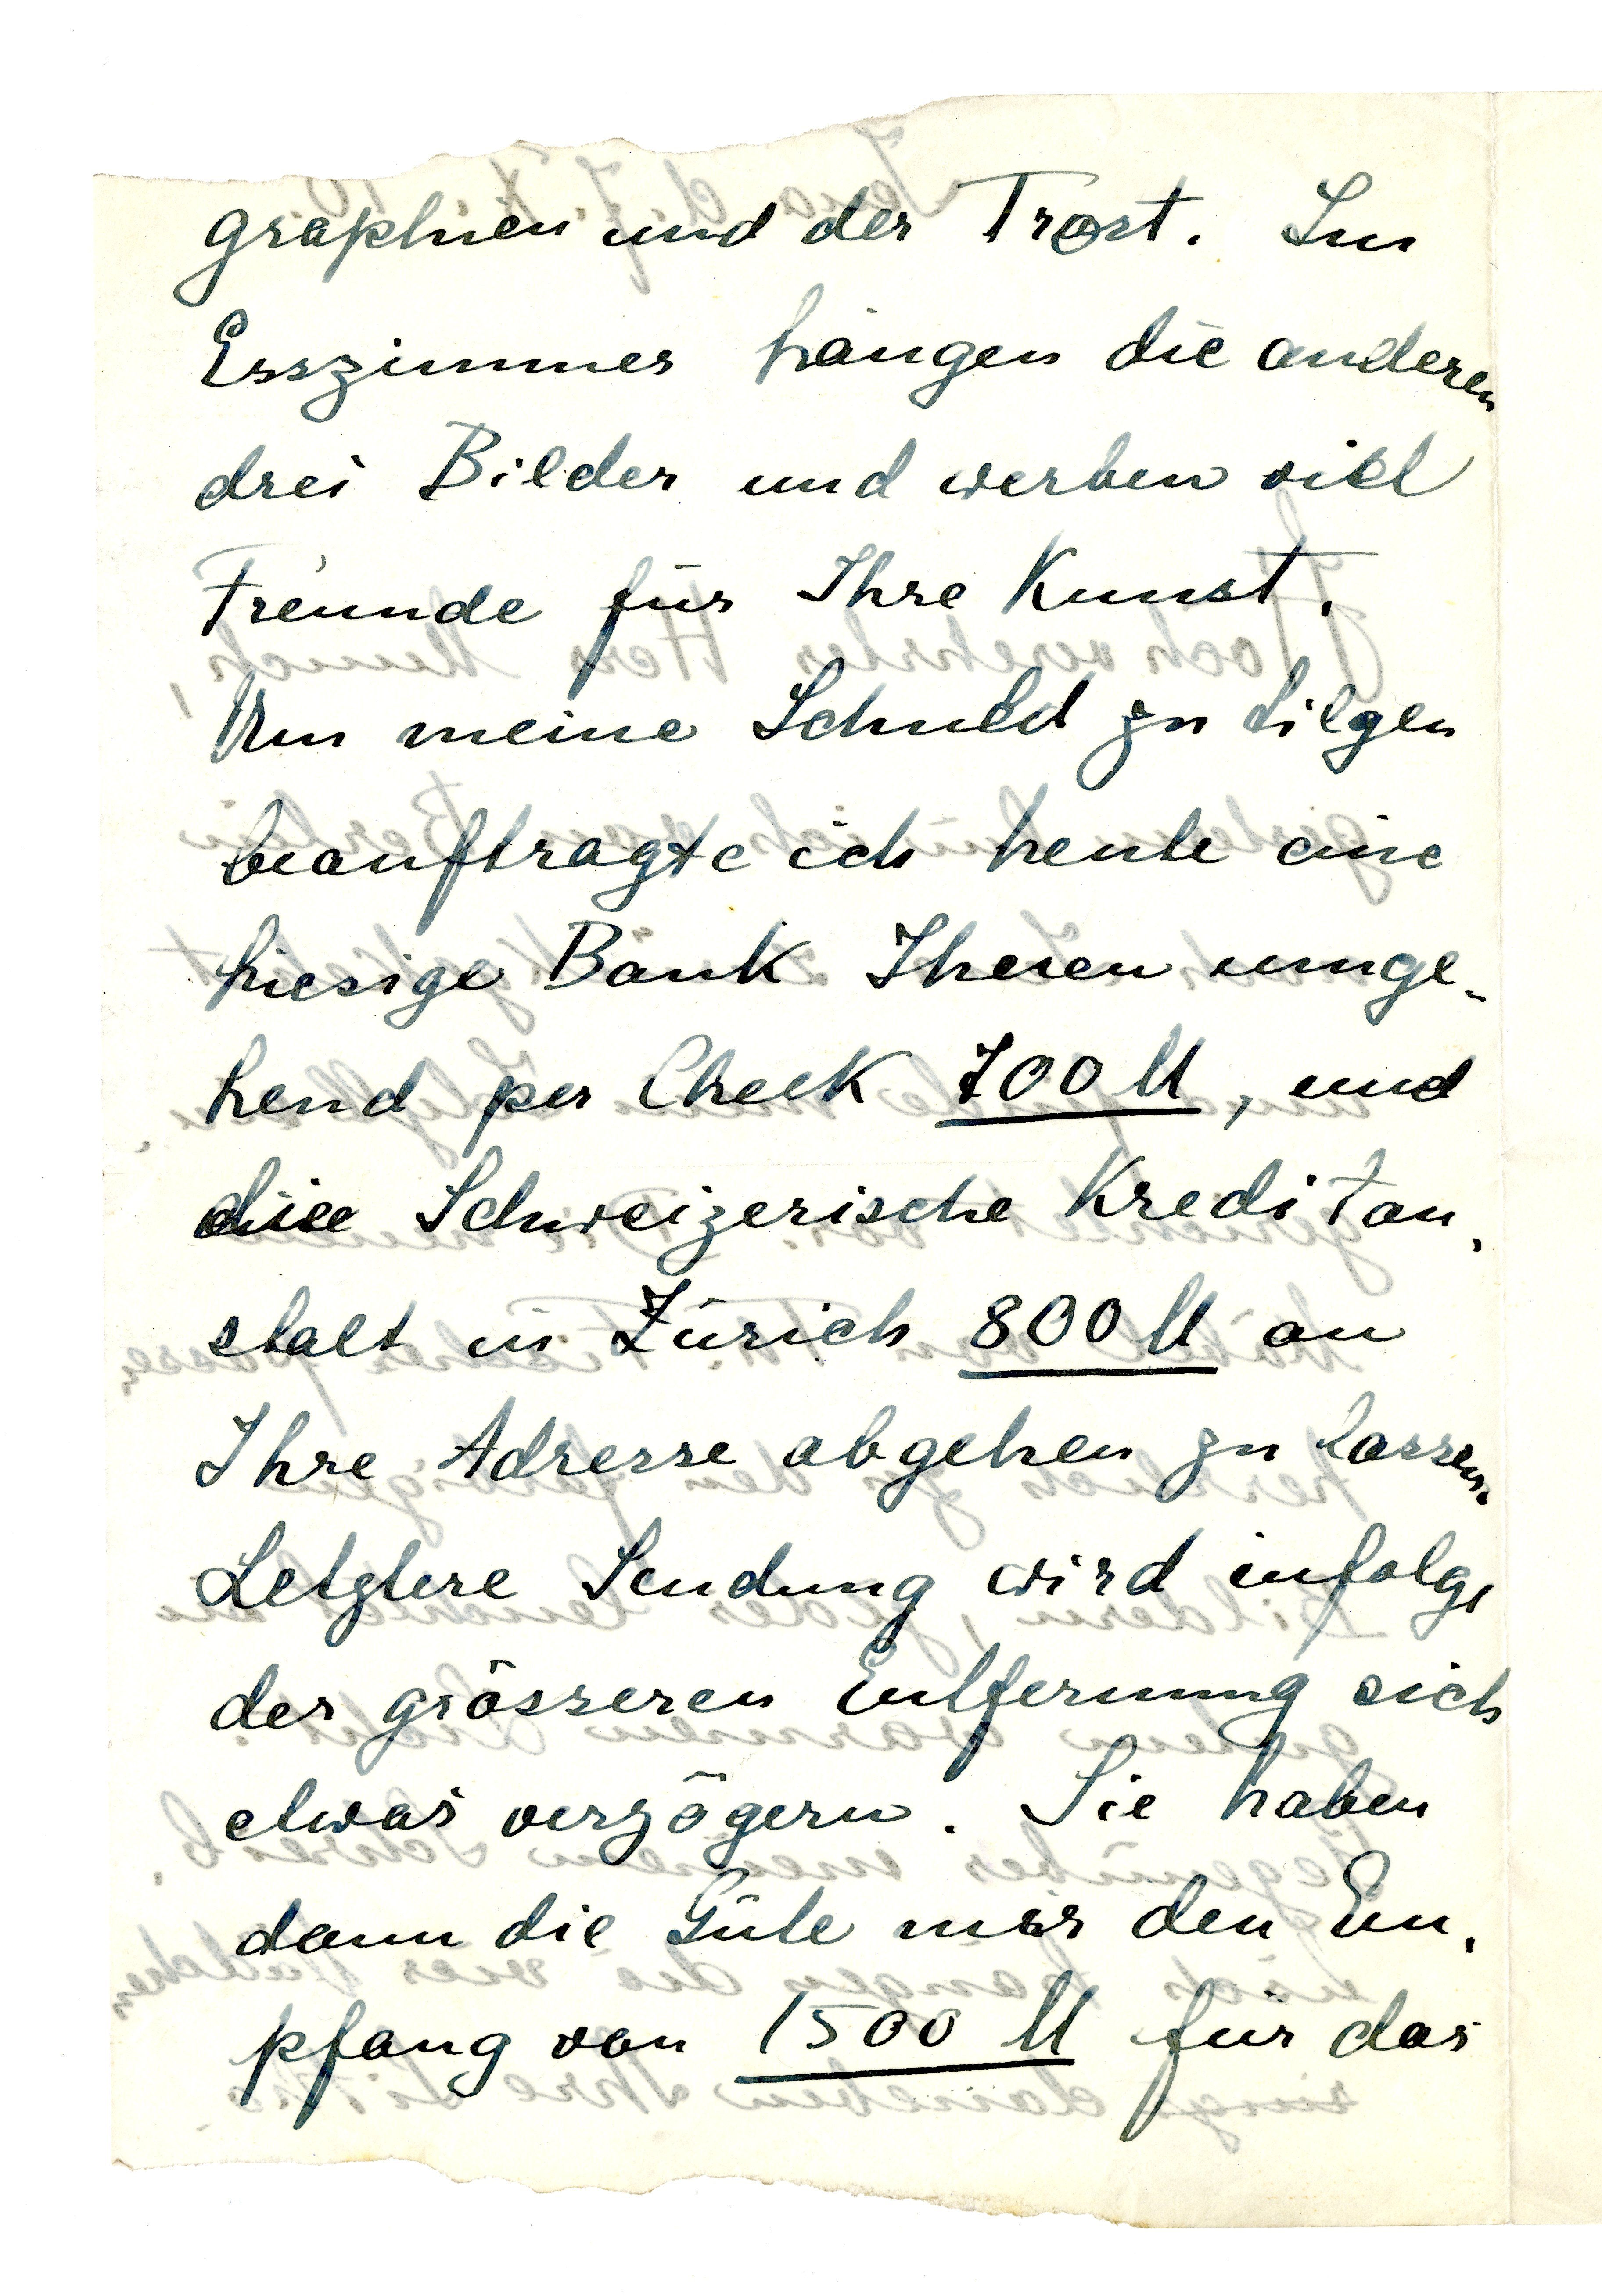 graphien und der Trost. Im
Esszimmer hängen die anderen
drei Bilder und werben viel
Freunde für Ihre Kunst.
Um meine Schuld zu tilgen
beauftragte ich heute eine
hiesige Bank Ihnen umge-
hend per Check 700 M, und
die Schweizerische Kreditan-
stalt in Zürich 800 M an
Ihre Adresse abgehen zu lassen.
Letztere Sendung wird infolge
der grösseren Entfernung sich
etwas verzögern. Sie haben
dann die Güte mir den Em-
pfang von 1500 M für das